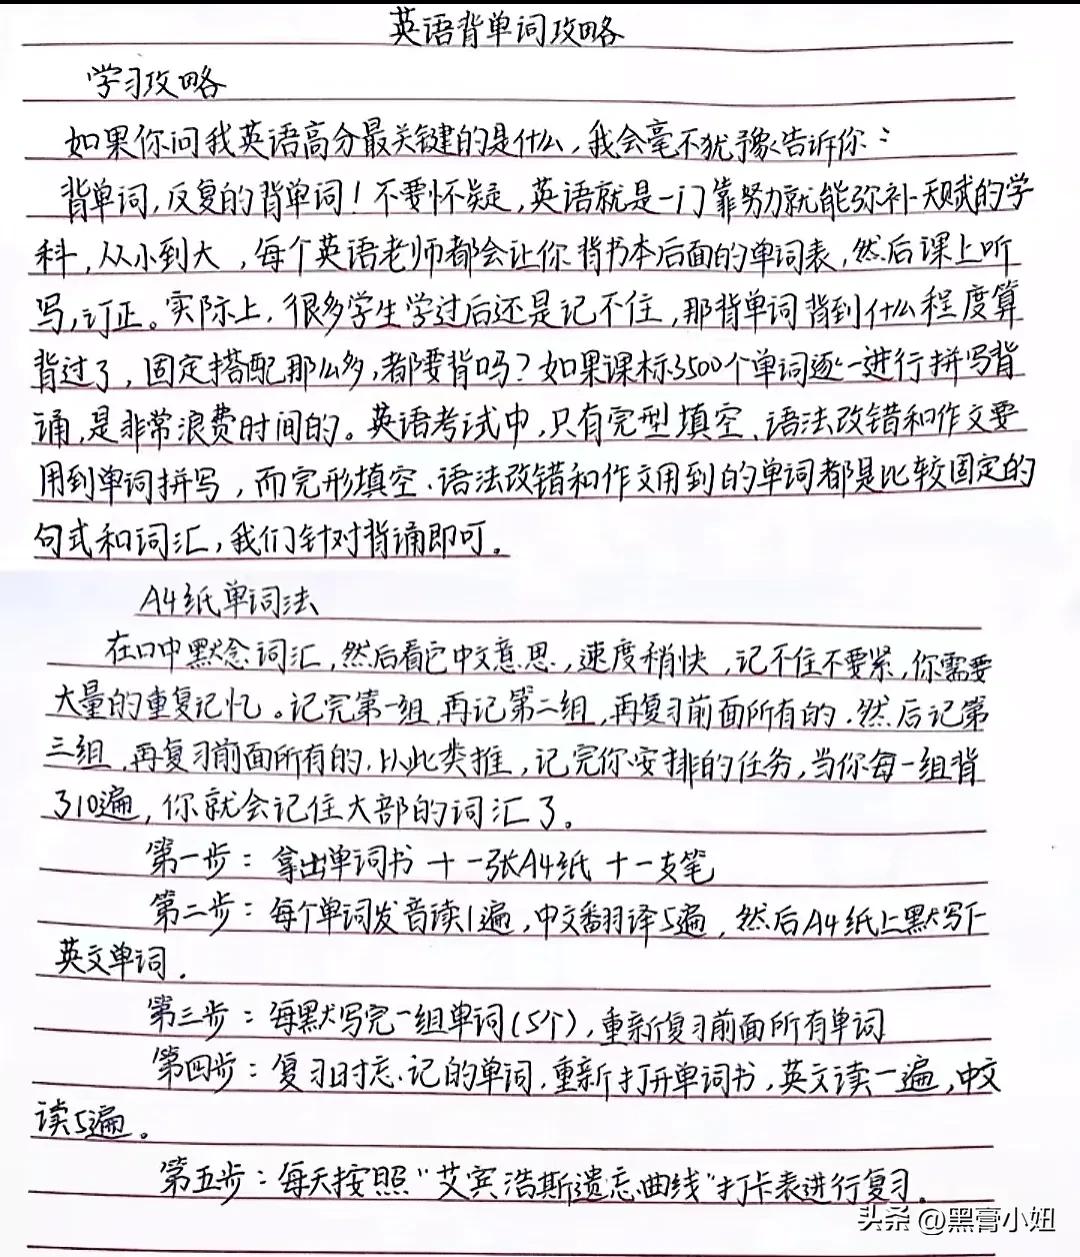 英语背单词攻略
学习攻略
如果你问我英语高分最关键的是什么,我会毫不犹豫告诉你:
背单词,反复的背单词!不要怀疑,英语就是一门靠努力就能弥补天赋的学
科,从小到大,每个英语老师都会让你背书本后面的单词表,然后课上听
写,订正。实际上,很多学生学过后还是记不住,那背单词背到什么程度算
背过了,固定搭配那么多,都要背吗?如果课标3500个单词逐一进行拼写背
诵,是非常浪费时间的。英语考试中,只有完型填空、语法改错和作文要
用到单词拼写,而完形填空、语法改错和作文用到的单词都是比较固定的
句式和词汇,我们针对背诵即可。
A4纸单词法
在口中默念词汇,然后看它中文意思,速度稍快,记不住不要紧,你需要
大量的重复记忆。记完第一组,再记第二组,再复习前面所有的,然后记第
三组,再复习前面所有的,以此类推,记完你安排的任务,当你每一组背
了10遍,你就会记住大部的词汇了。
第一步:拿出单词书+一张A4纸+一支笔
第二步:每个单词发音读1遍,中文翻译5遍,然后A4纸上默写下
英文单词.
第三步:每默写完一组单词(5个),重新复习前面所有单词
第四步:复习时忘记的单词,重新打开单词书,英文读一遍,中文
读5遍。
第五步:每天按照"艾宾浩斯遗忘曲线"打卡表进行复习.
头条 @黑膏小妞